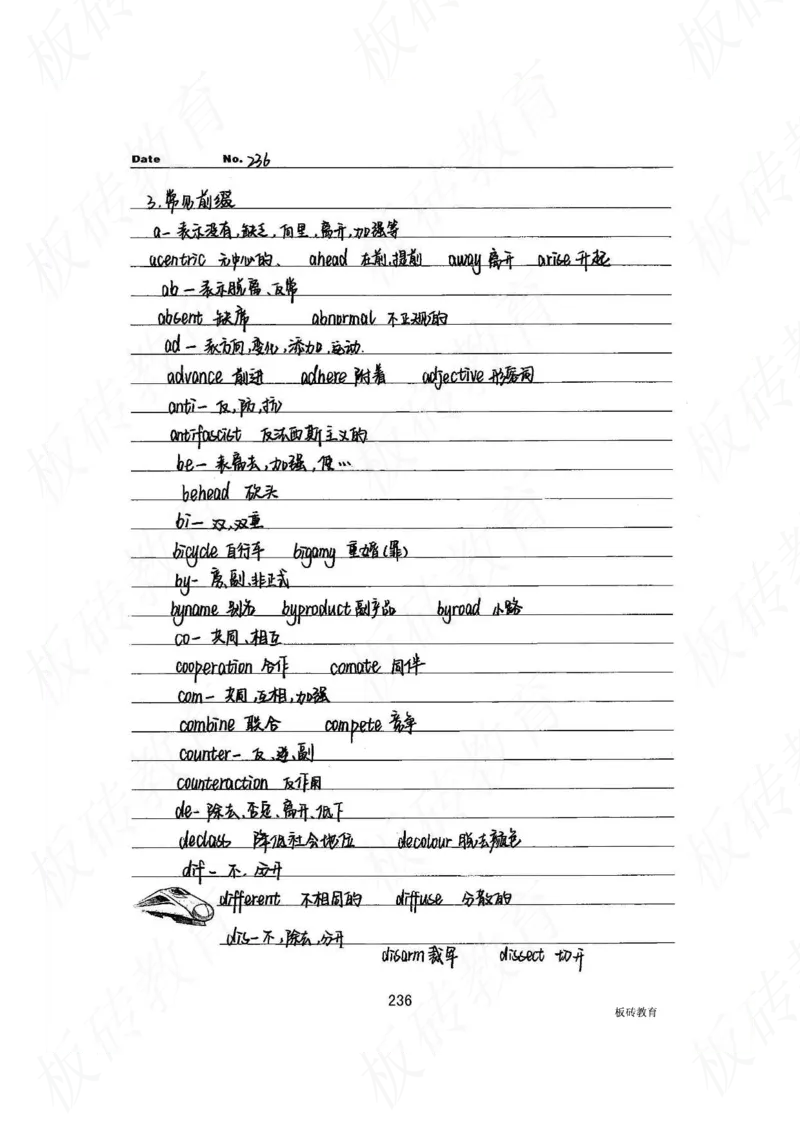 Date No. 236
3.常见前缀
a- 表示没有,缺乏,向里,离开,加强等
acentric 无中心的、 ahead 在前,提前 away 离开 arise 升起
ab - 表示脱离、反常
absent 缺席 abnormal 不正规的
ad - 表方向,变化,添加,运动.
advance 前进 adhere 附着 adjective 形容词
anti- 反,防,抗
antifascist 反法西斯主义的
be- 表离去,加强,使…
behead 砍头
bi- 双,双重
bicycle 自行车 bigamy 重婚(罪)
by- 离,副,非正式
byname 别名 byproduct 副产品 byroad 小路
co- 共同、相互
cooperation 合作 comate 同伴
com- 共同,互相,加强
combine 联合 compete 竞争
counter- 反、逆、副
counteraction 反作用
de- 除去、否定、离开、低下
declass 降低社会地位 decolour 脱去颜色
dif - 不、分开
different 不相同的 diffuse 分散的
dis-不,除去,分开
disarm 裁军 dissect 切开
236
板砖教育